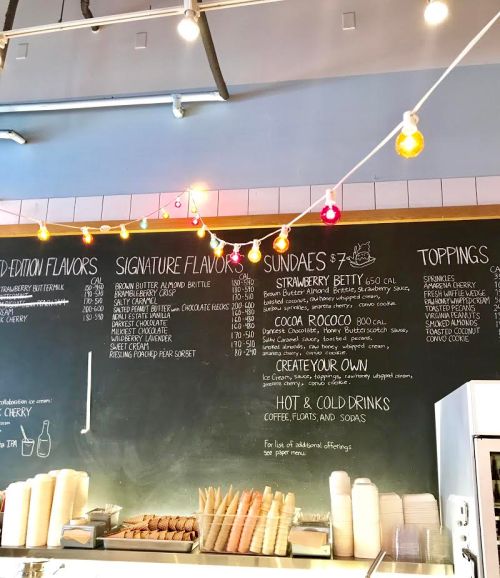 D-EDITION FLAVORS
CAL
STRAWBERRY BUTTERMILK
CREAM
CK CHERRY
collaboration ice cream:
K CHERRY
IPA
SIGNATURE FLAVORS
CAL
BROWN BUTTER ALMOND BRITTLE
BRAMBLEBERRY CRISP
SALTY CARAMEL
SALTED PEANUT BUTTER WITH CHOCOLATE FLECKS
NDALI ESTATE VANILLA
DARKEST CHOCOLATE
MILKIEST CHOCOLATE
WILDBERRY LAVENDER
SWEET CREAM
RIESLING POACHED PEAR SORBET
SUNDAES $7
STRAWBERRY BETTY 650 CAL
Brown Butter Almond Brittle, Strawberry sauce,
toasted coconut, raw honey whipped cream,
sprinkles, amarena cherry, convo cookie.
COCOA ROCOCO 800 CAL
Darkest Chocolate, Honey Butterscotch sauce,
Salty Caramel sauce, toasted pecans,
smoked almonds, raw honey whipped cream,
amarena cherry, convo cookie.
CREATE YOUR OWN
Ice Cream, sauce, toppings, raw honey whipped cream,
amarena cherry, convo cookie.
HOT & COLD DRINKS
COFFEE, FLOATS, AND SODAS
For list of additional offerings
see paper menu.
TOPPINGS
SPRINKLES
AMARENA CHERRY
FRESH WAFFLE WEDGE
RAW HONEY WHIPPED CREAM
TOASTED PECANS
VIRGINIA PEANUTS
SMOKED ALMONDS
TOASTED COCONUT
CONVO COOKIE